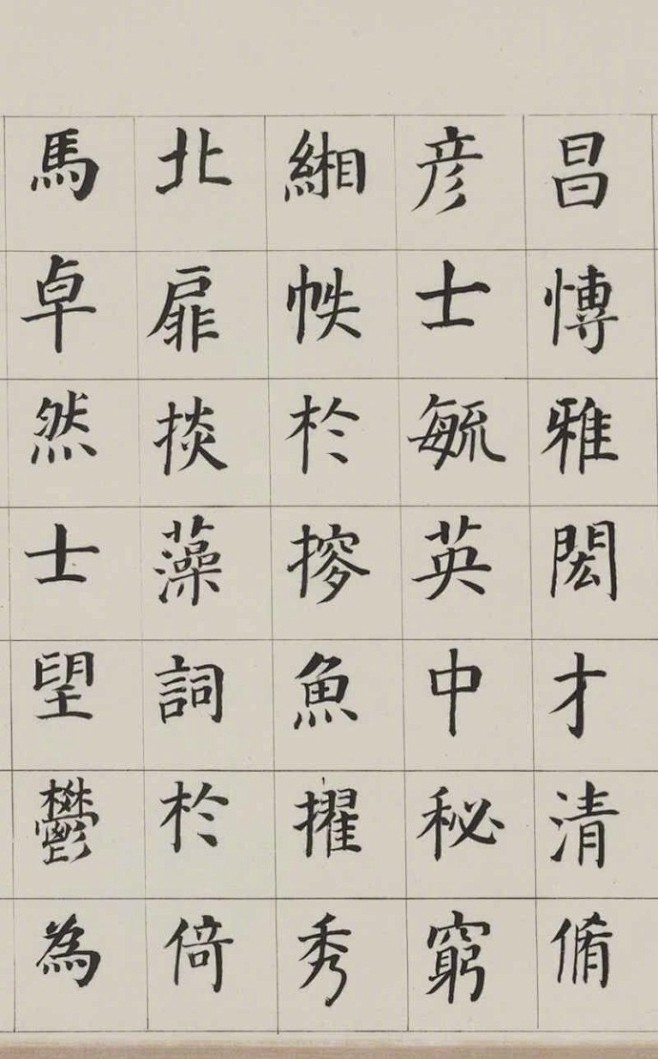 昌愽雅閎才清脩
彦士毓英中秘窮
緗帙扵摎魚擢秀
北扉掞藻詞扵倚
馬卓然士望鬱為